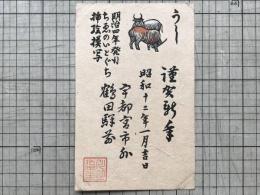 うし
謹賀新年
昭和十二年一月吉日
宇都宮市外
鶴田驛前
明治四年発行
ちゑのいとぐち
挿絵模写